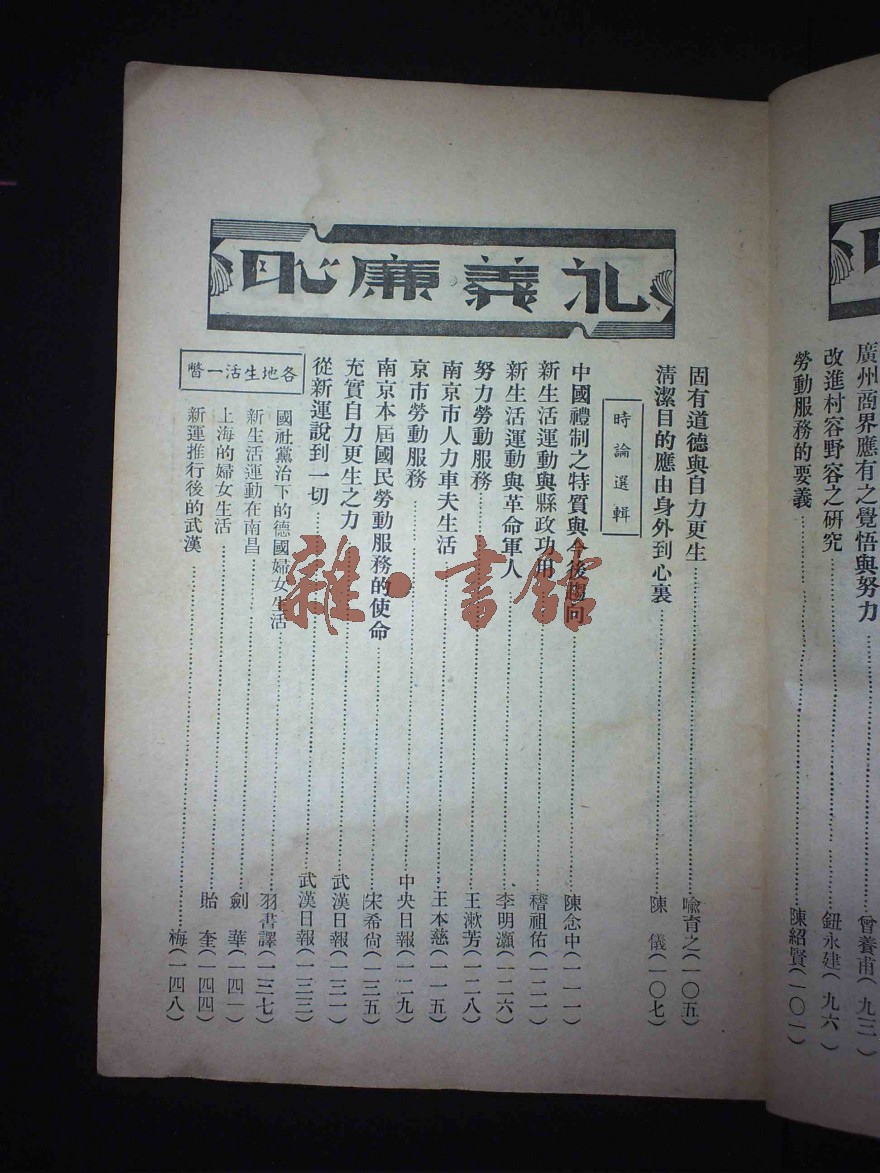 廣州商界應有之覺悟與努力……曾養甫(九三)
改進村容野容之研究……鈕永建(九六)
勞動服務的要義……陳紹賢(一〇一)
礼義廉恥
固有道德與自力更生……喻育之(一〇五)
清潔目的應由身外到心裏……陳儀(一〇七)
時論選輯
中國禮制之特質與今後向……陳念中(一一一)
新生活運動與縣政功用……稽祖佑(一二一)
新生活運動與革命軍人……李明灝(一二六)
努力勞動服務……王漱芳(一二八)
南京市人力車夫生活……王本慈(一一五)
京市勞動服務……中央日報(一二九)
南京本屆國民勞動服務的使命……宋希尙(一三五)
充實自力更生之力……武漢日報(一三一)
從新運說到一切……武漢日報(一三三)
各地生活一瞥
國社黨治下的德國婦女生活……羽書譯(一三七)
新生活運動在南昌……劍華(一四一)
上海的婦女生活……貽奎(一四四)
新運推行後的武漢……梅(一四八)
雜·書館